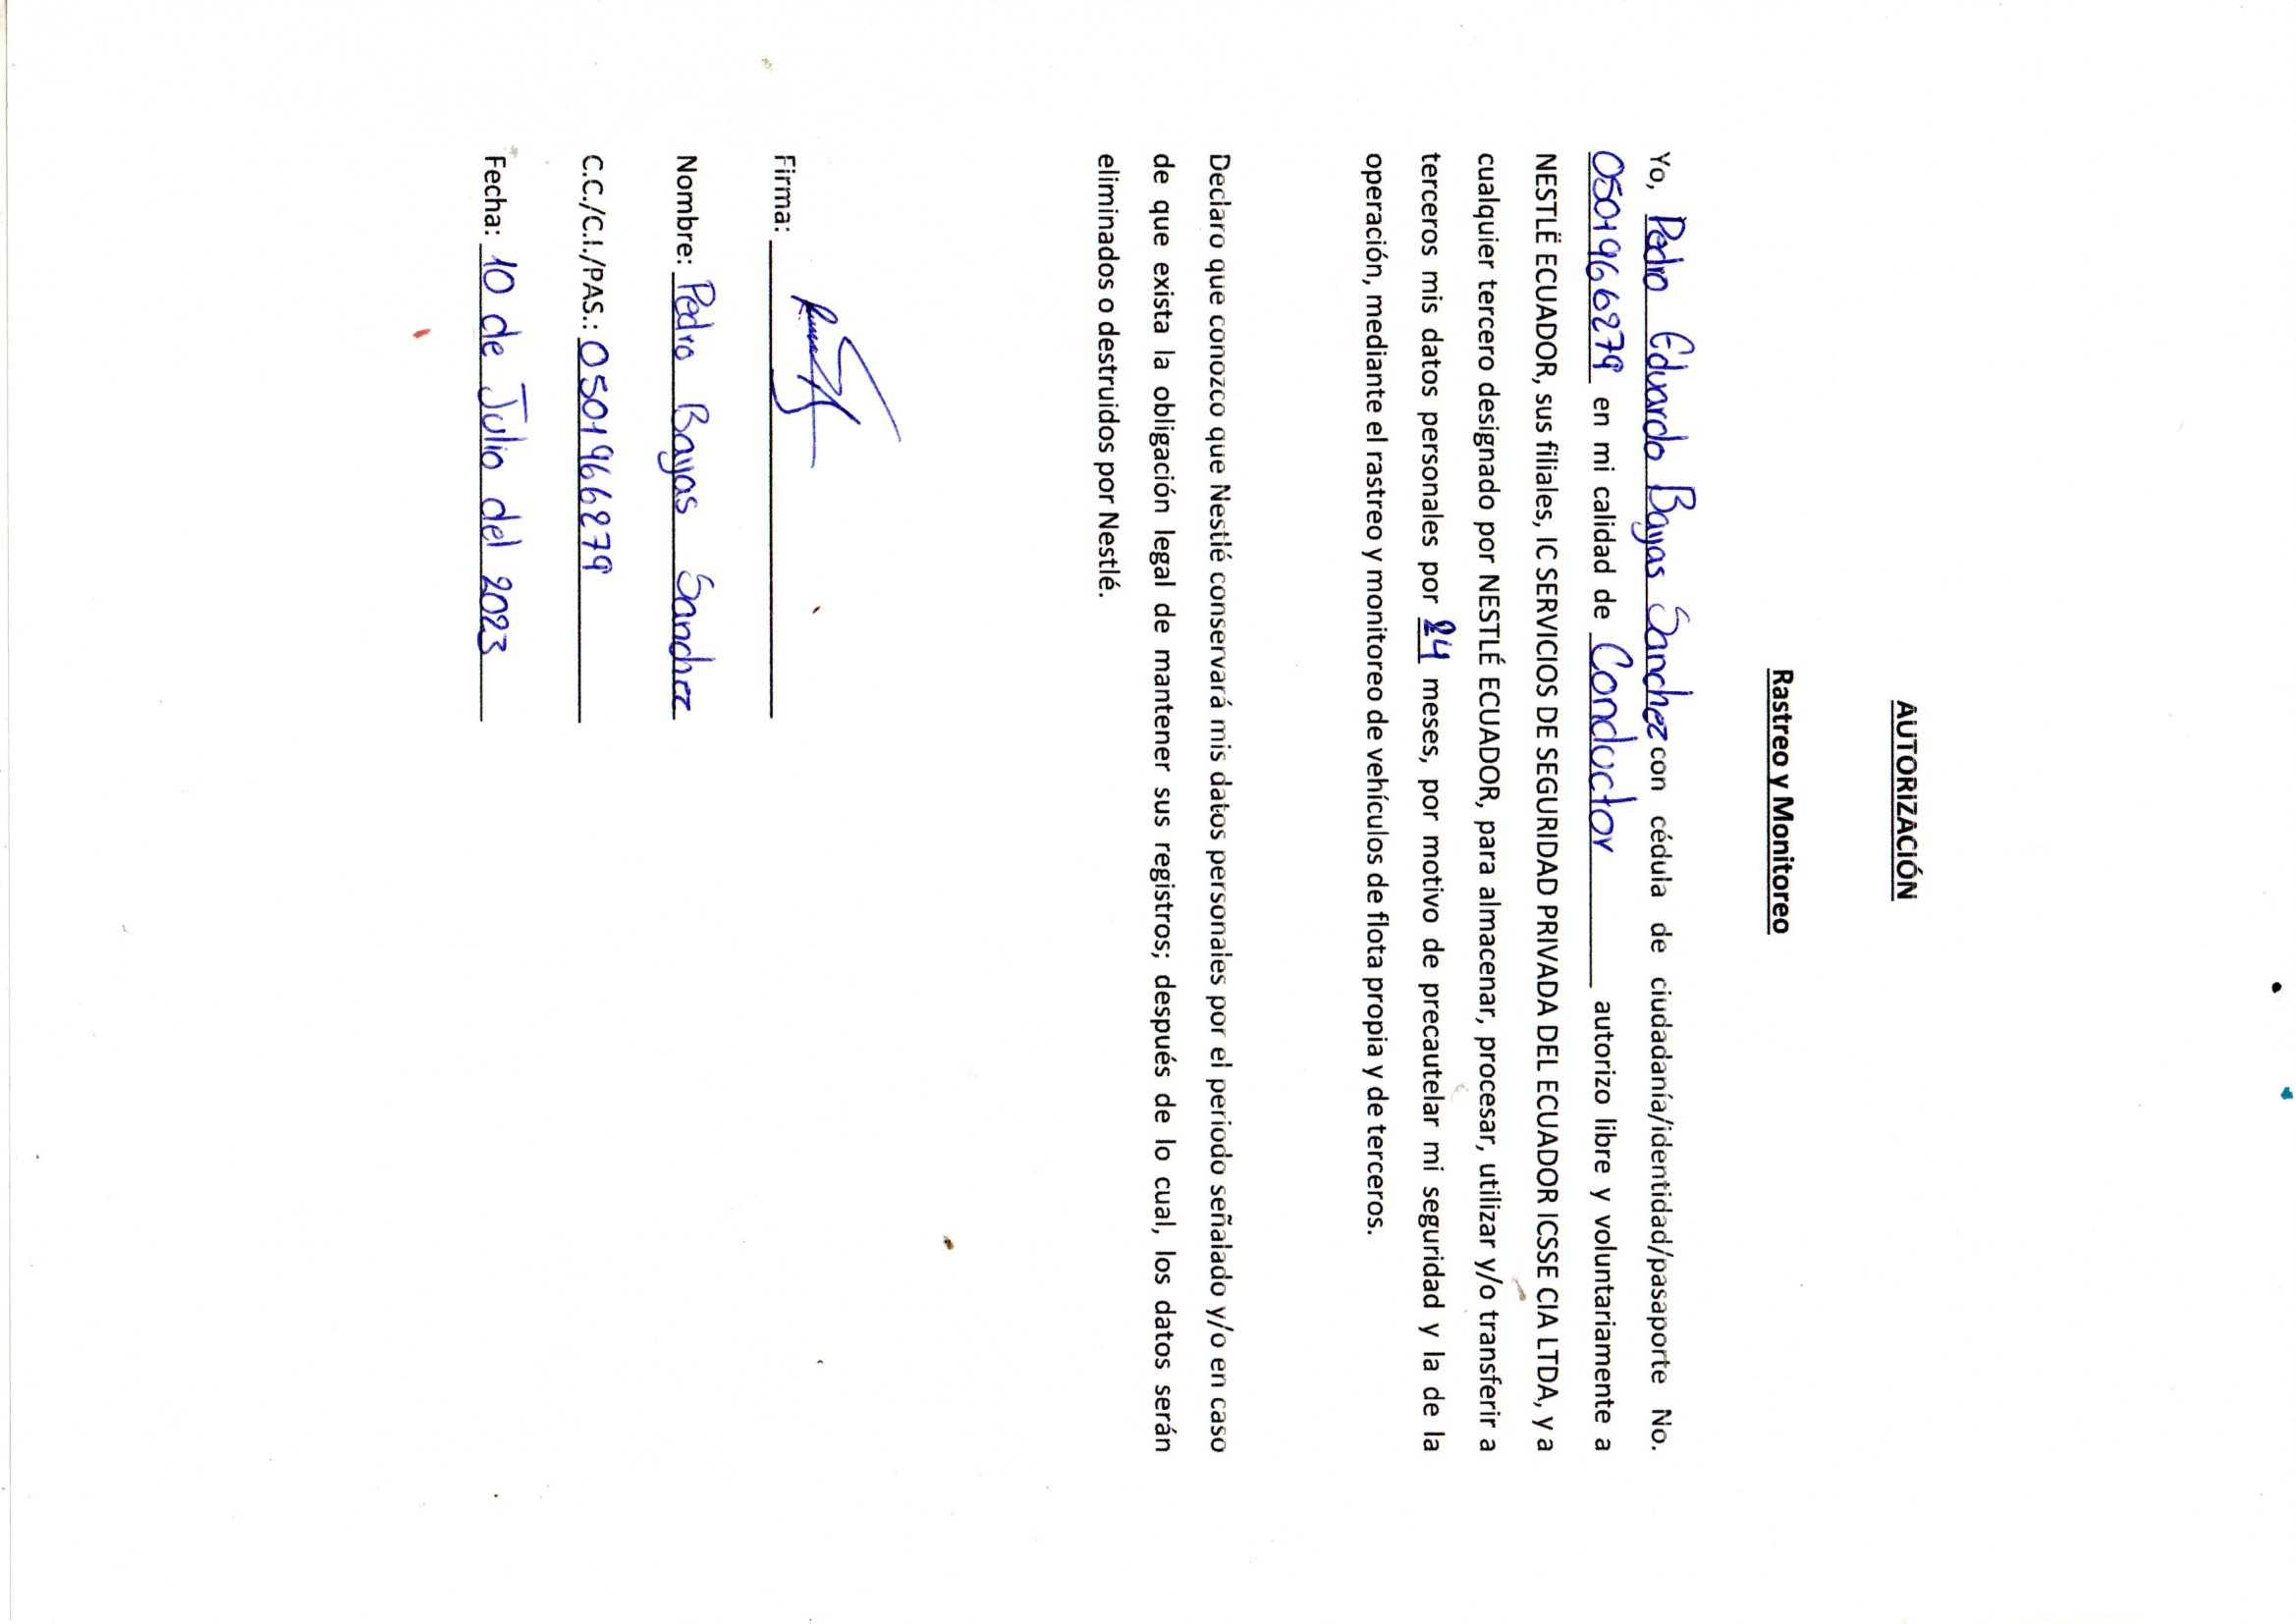 AUTORIZACIÓN
Rastreo y Monitoreo
Yo, Pedro Eduardo Bayas Sanchez con cédula de ciudadanía/identidad/pasaporte No.
0501966279 en mi calidad de Conductor autorizo libre y voluntariamente a
NESTLË ECUADOR, sus filiales, IC SERVICIOS DE SEGURIDAD PRIVADA DEL ECUADOR ICSSE CIA LTDA, y a
cualquier tercero designado por NESTLÉ ECUADOR, para almacenar, procesar, utilizar y/o transferir a
terceros mis datos personales por 24 meses, por motivo de precautelar mi seguridad y la de la
operación, mediante el rastreo y monitoreo de vehículos de flota propia y de terceros.
Declaro que conozco que Nestlé conservará mis datos personales por el periodo señalado y/o en caso
de que exista la obligación legal de mantener sus registros; después de lo cual, los datos serán
eliminados o destruidos por Nestlé.
Firma:
Nombre: Pedro Bayas Sanchez
C.C./C.I./PAS.: 0501966279
Fecha: 10 de Julio del 2023